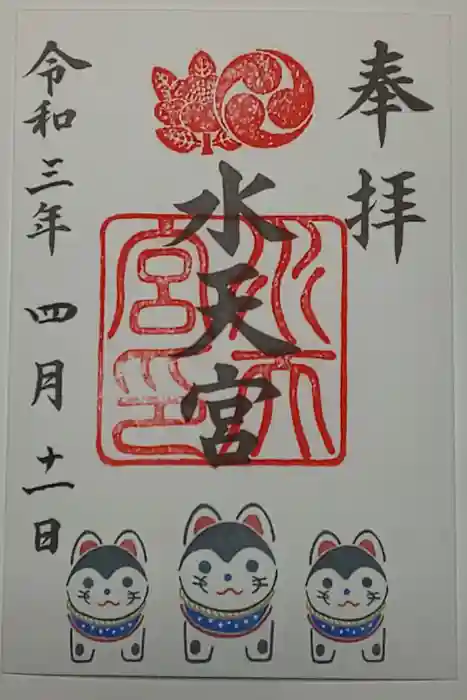 奉拝
水天宮
令和三年 四月 十一日
水天宮印